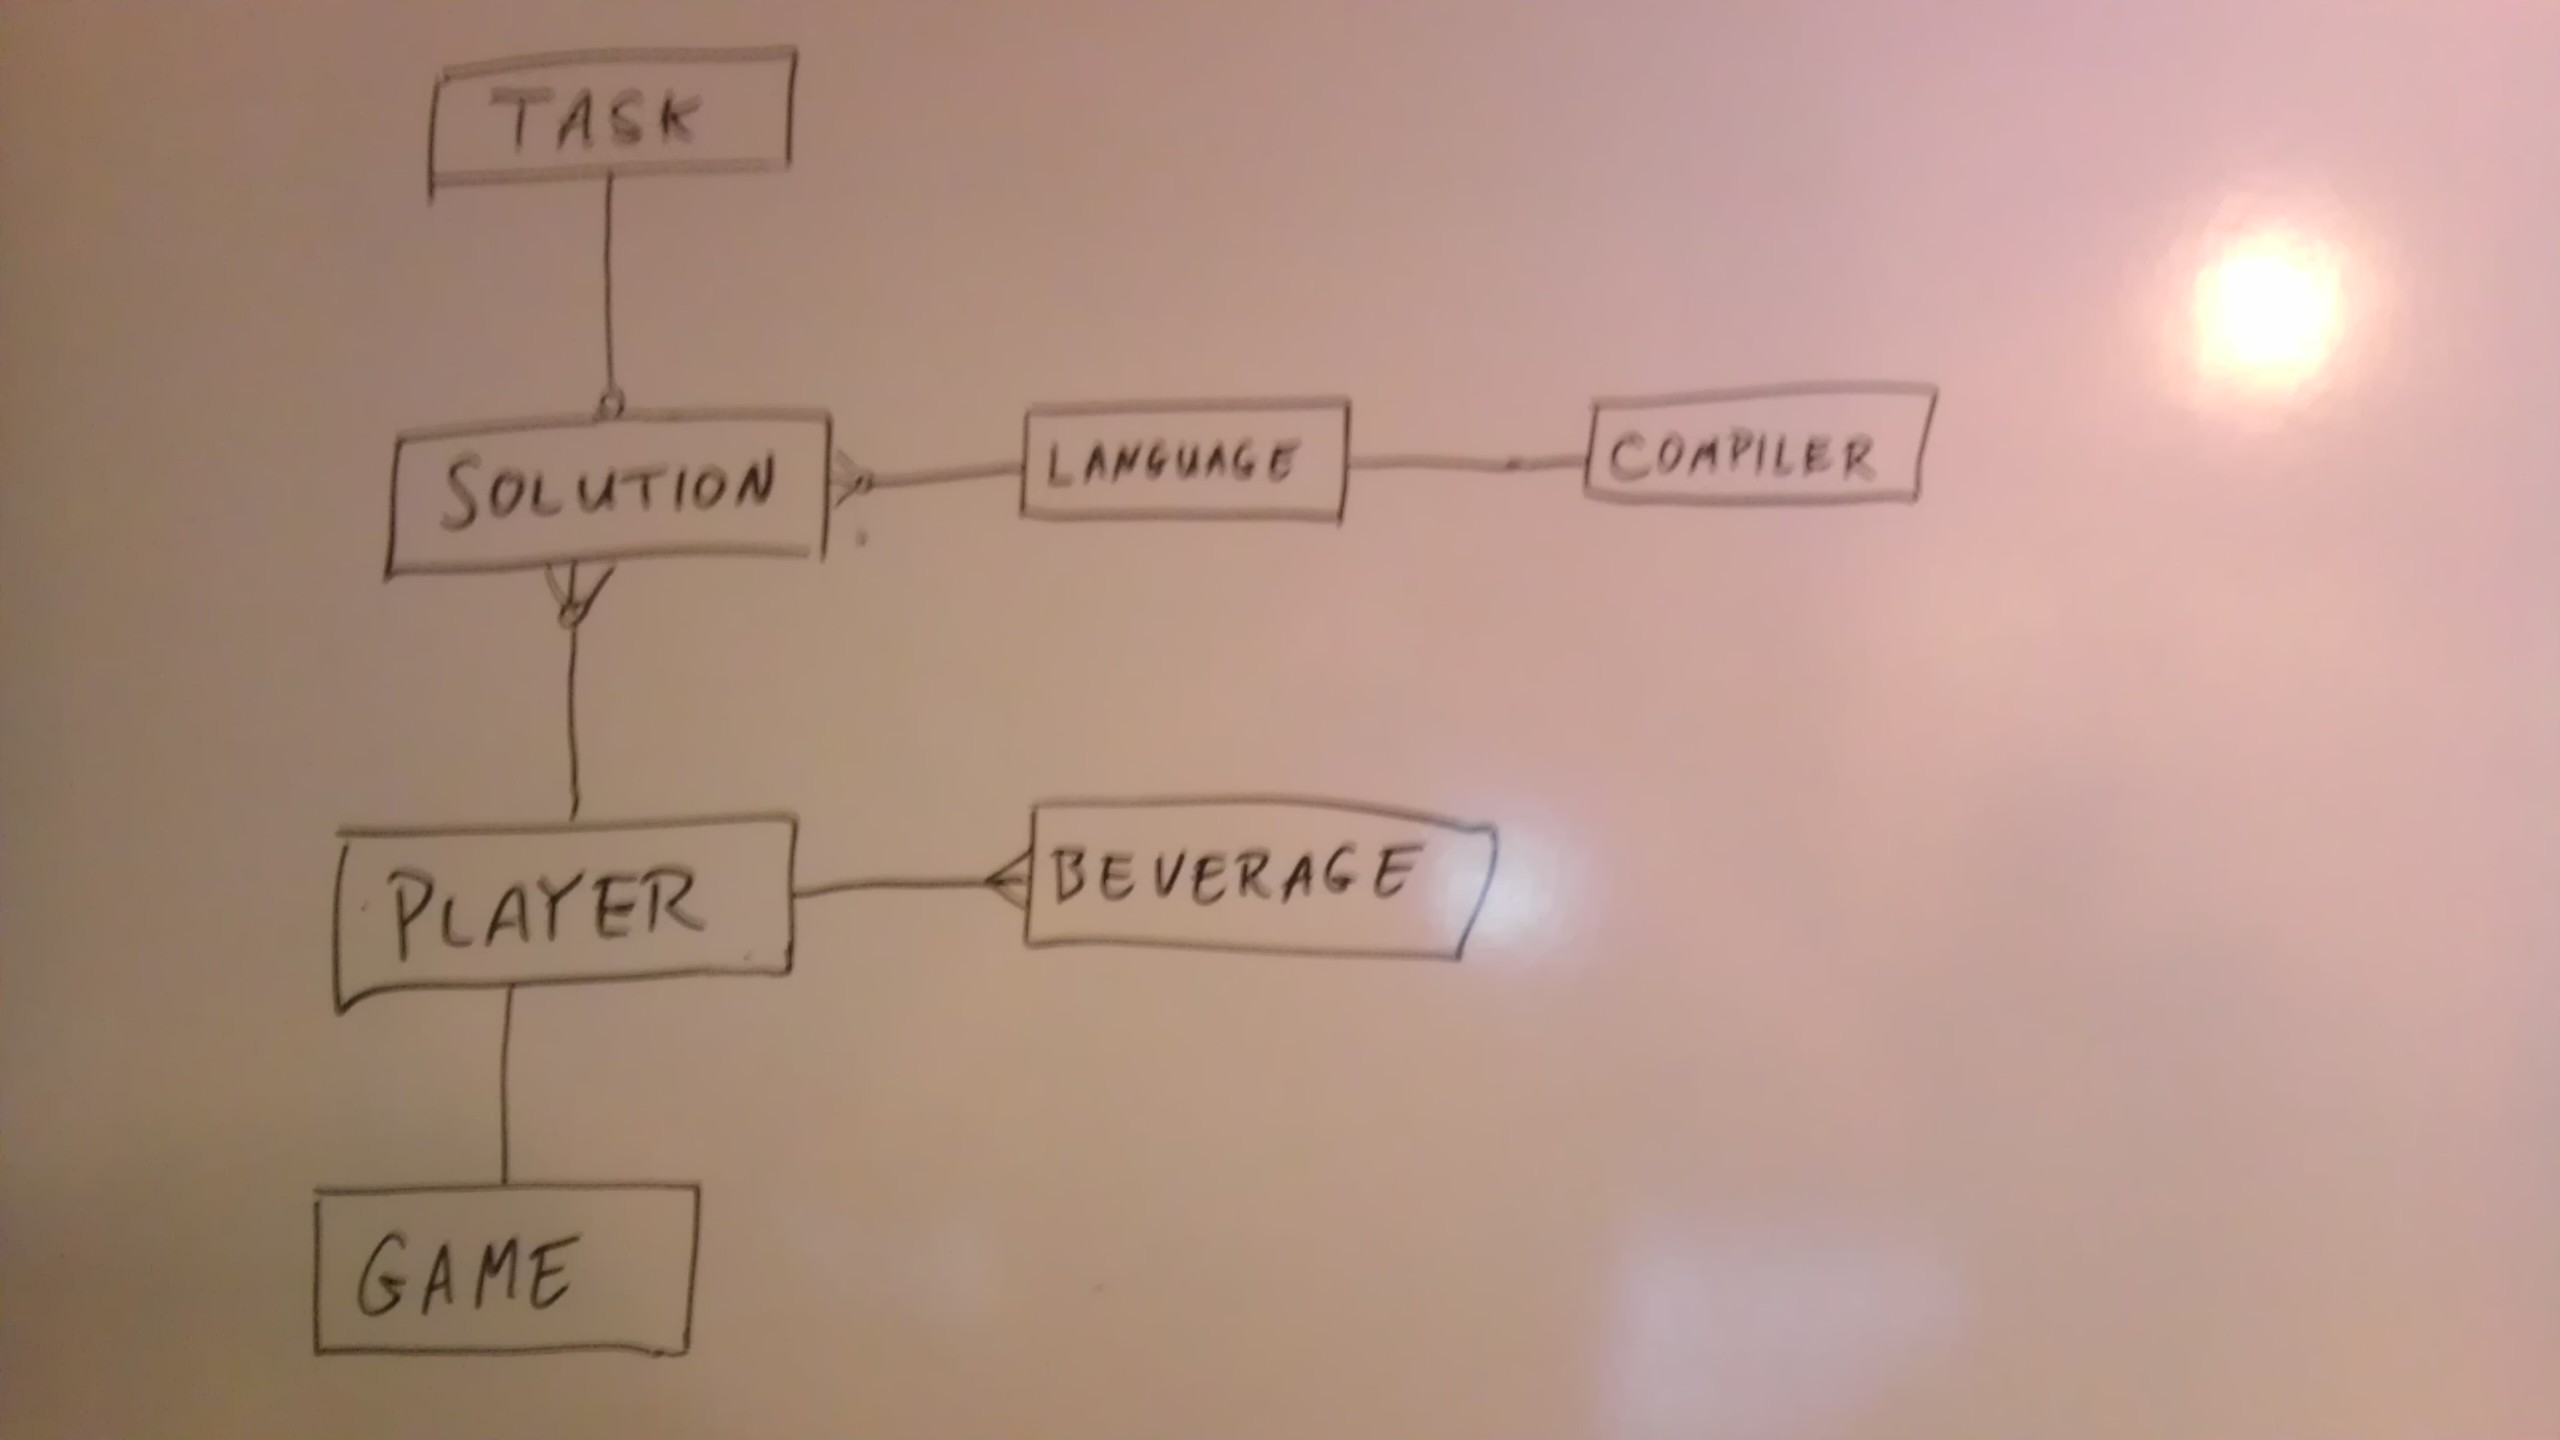 TASK
SOLUTION
LANGUAGE
COMPILER
PLAYER
BEVERAGE
GAME